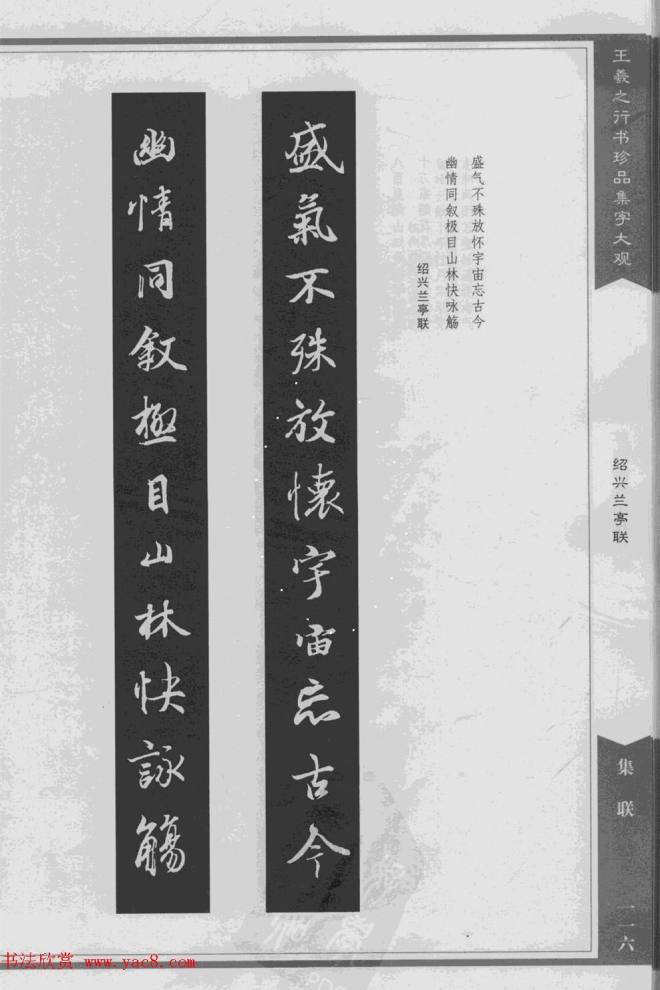 王羲之行书珍品集字大观
绍兴兰亭联
集联
一一六
盛气不殊放怀宇宙忘古今
幽情同叙极目山林快咏觞
绍兴兰亭联
盛氣不殊放懷宇宙忘古今
幽情同叙極目山林快詠觴
书法欣赏 www.yac8.com